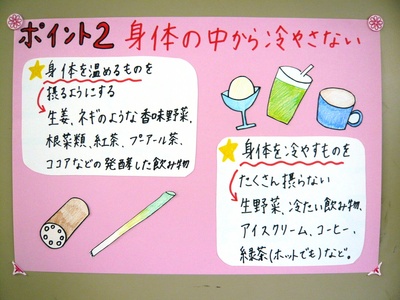 ポイント2 身体の中から冷やさない
身体を温めるものを
摂るようにする
生姜、ネギのような香味野菜、
根菜類、紅茶、プアール茶、
ココアなどの発酵した飲み物
身体を冷やすものを
たくさん摂らない
生野菜、冷たい飲み物、
アイスクリーム、コーヒー、
緑茶(ホットでも)など。